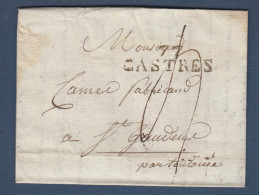 Monsieur
CASTRES
Camel fabricant
a St Gaudens
par toulouse